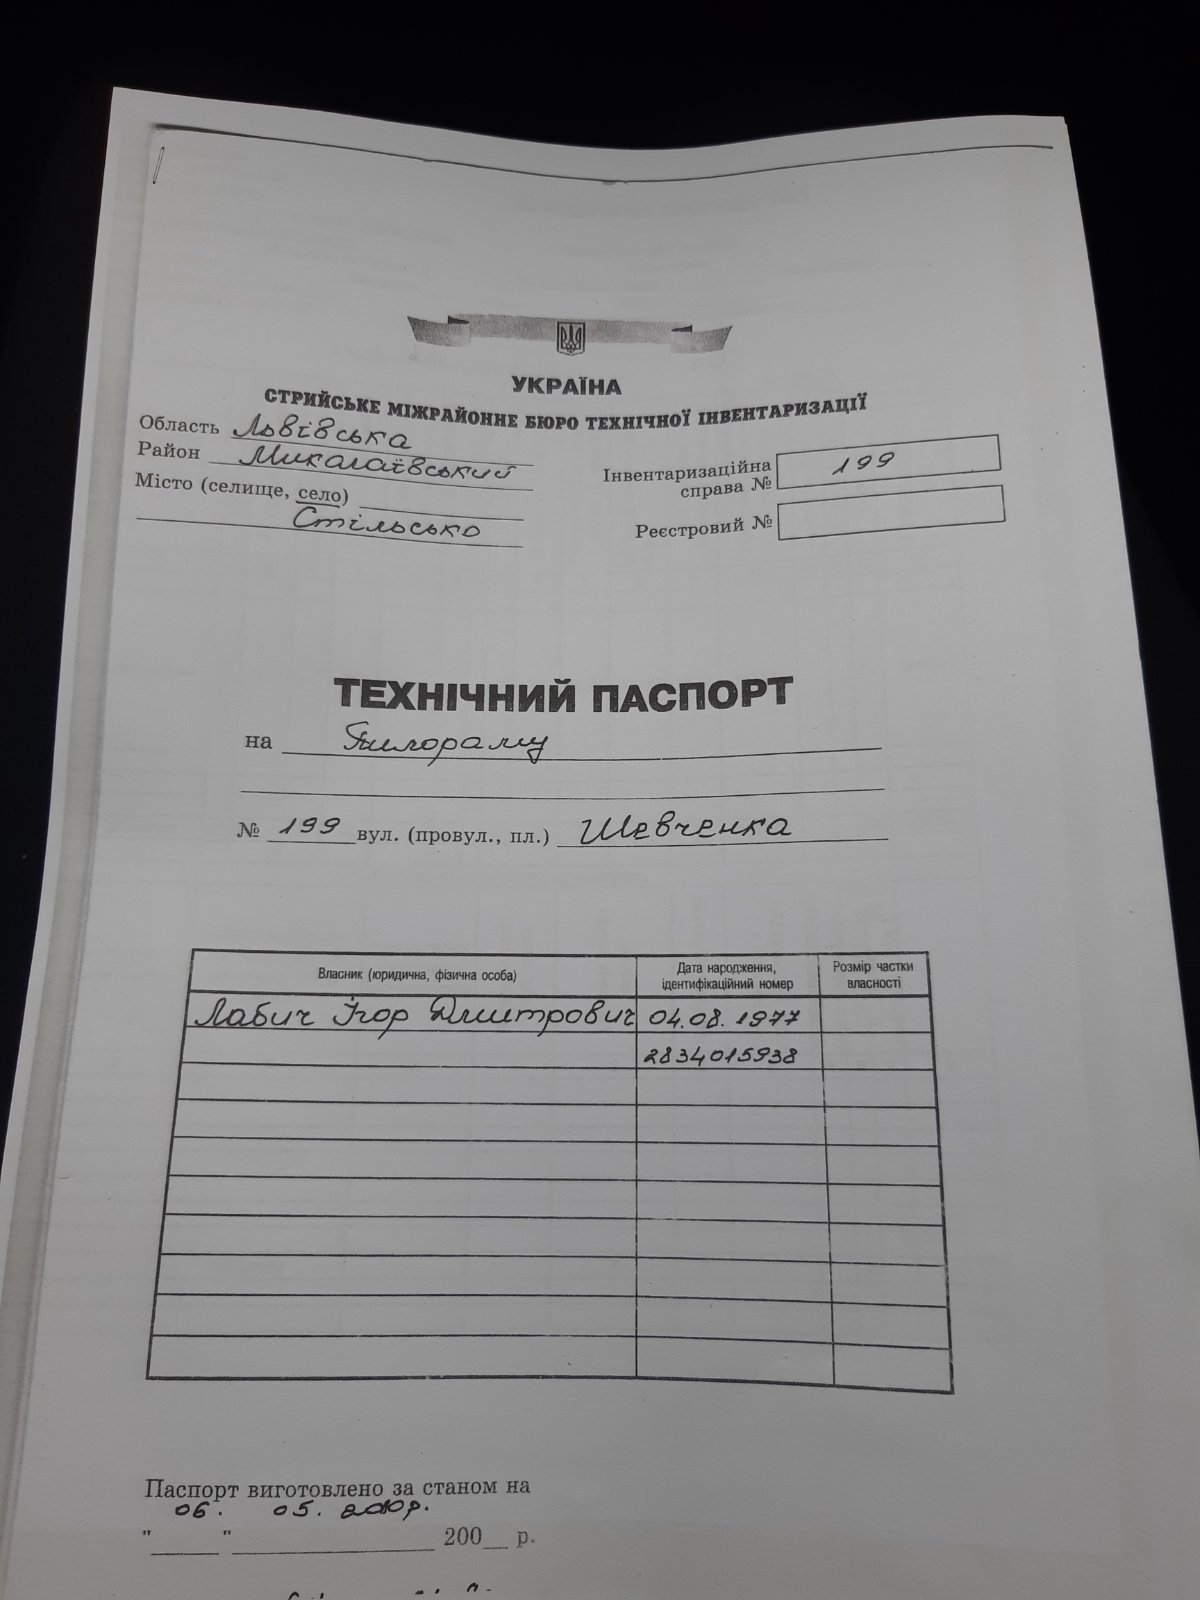 УКРАЇНА
СТРИЙСЬКЕ МІЖРАЙОННЕ БЮРО ТЕХНІЧНОЇ ІНВЕНТАРИЗАЦІЇ
Область Львівська
Район Миколаївський
Місто (селище, село)
Стільсько
Інвентаризаційна справа № 199
Реєстровий №
ТЕХНІЧНИЙ ПАСПОРТ
на Пилораму
№ 199 вул. (провул., пл.) Шевченка
Власник (юридична, фізична особа) Дата народження, ідентифікаційний номер Розмір частки власності
Лабич Ігор Дмитрович 04.08.1977
2834015938
Паспорт виготовлено за станом на
06. 05. 2010р.
"___"___ 200__ р.